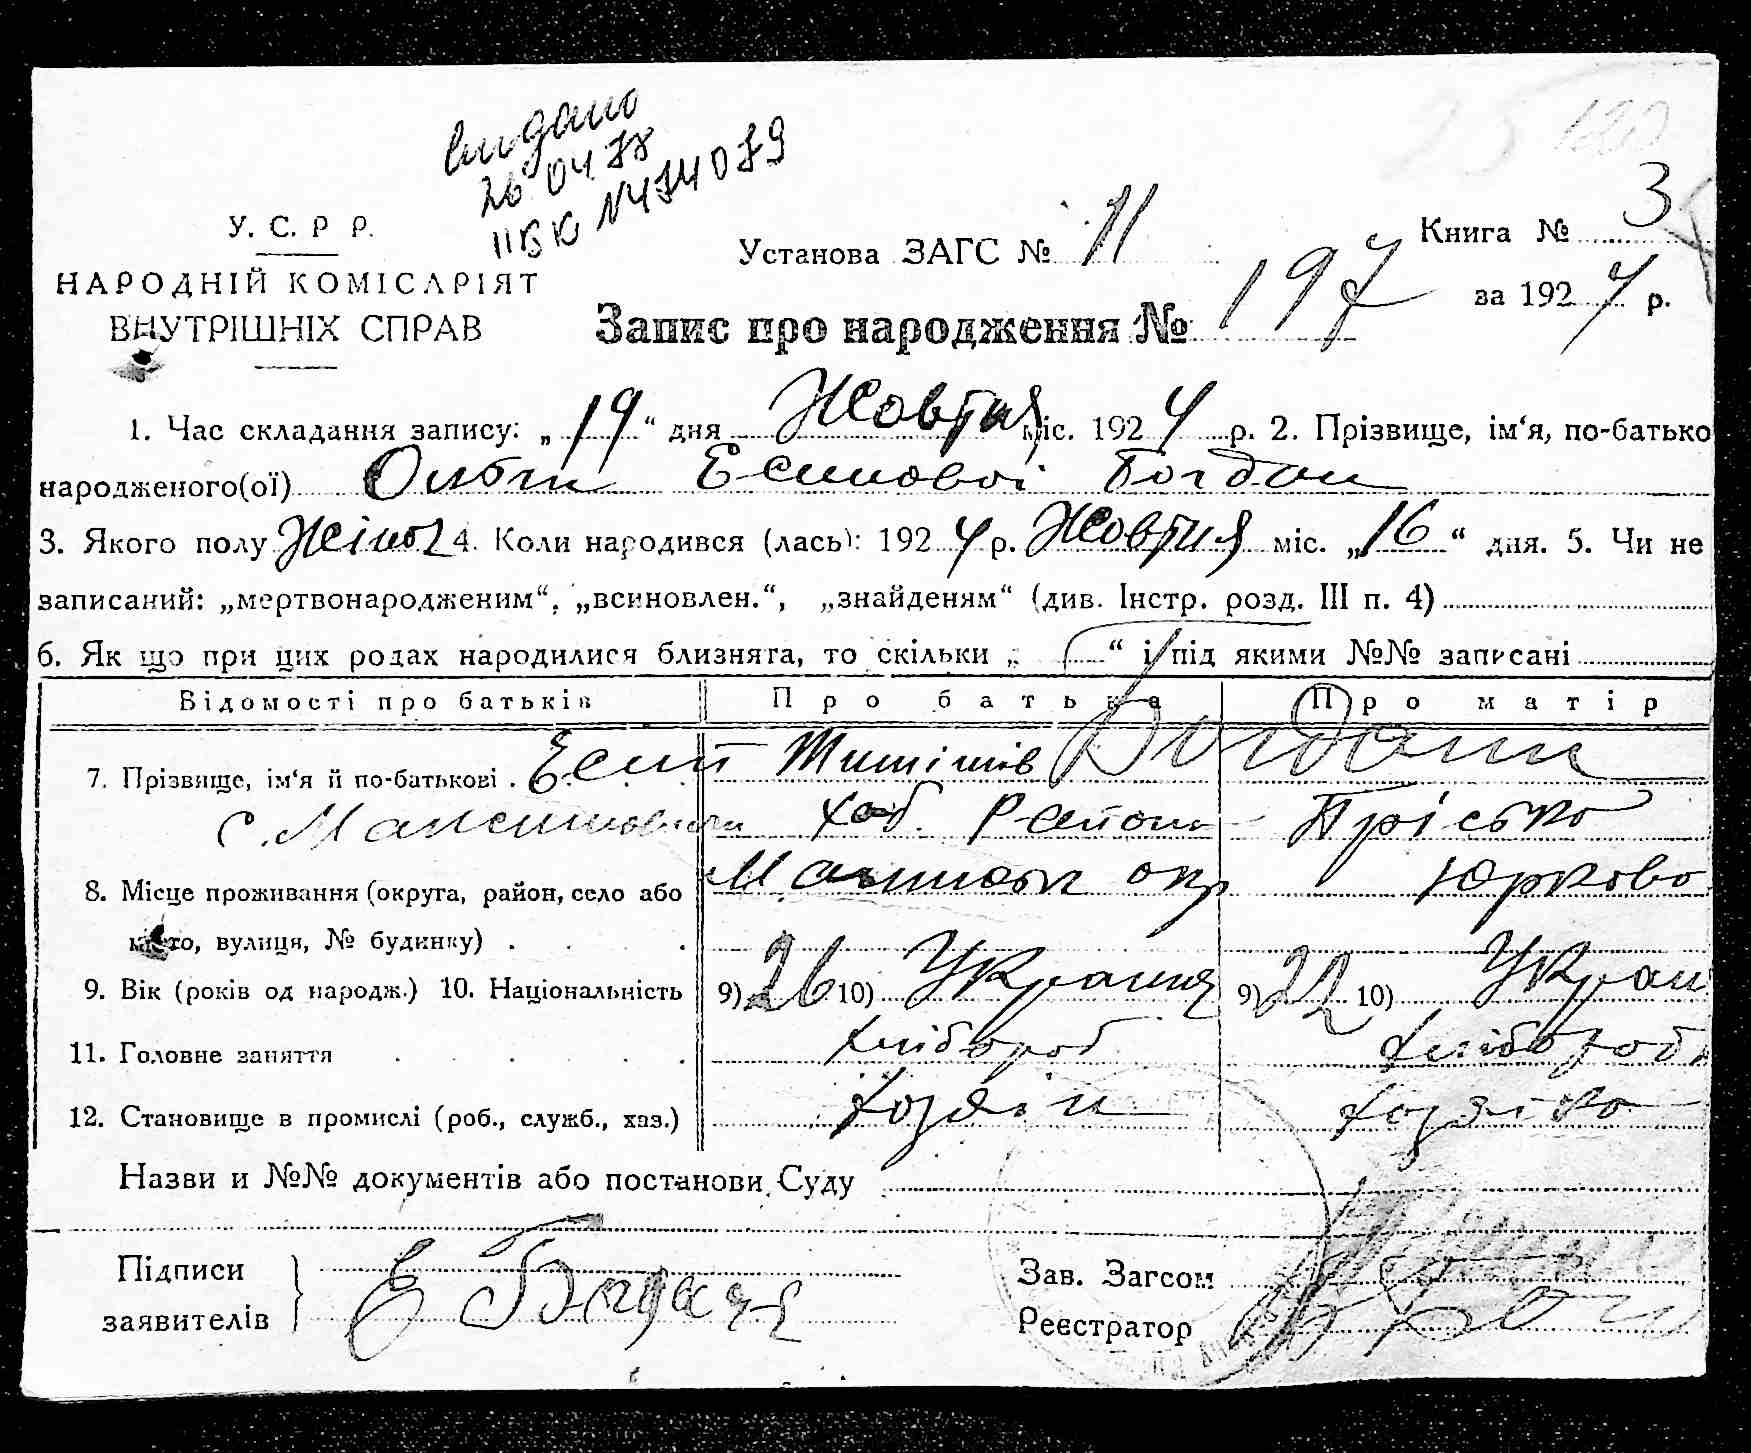 видано
26 04 78
ІІБК №474079
У. С. Р Р.
НАРОДНІЙ КОМІСАРІЯТ
ВНУТРІШНІХ СПРАВ
Установа ЗАГС № 11
Книга № 3
за 1924 р.
Запис про народження № 197
1. Час складання запису: „19“ дня Жовтня міс. 1924 р. 2. Прізвище, ім‘я, по-батькові
народженого(ої) Ольги Есипової Богдан
3. Якого полу Жіноч 4. Коли народився (лась): 1924 р. Жовтня міс. „16“ дня. 5. Чи не
записаний: „мертвонародженим“, „всиновлен.“, „знайденям“ (див. Інстр. розд. III п. 4)
6. Як що при цих родах народилися близнята, то скільки „ “ і під якими №№ записані
Відомості про батьків Про батька Про матір
7. Прізвище, ім‘я й по-батькові . Есип Богдани
с. Максимовки Хоб. Района Пріська
8. Місце проживання (округа, район, село або окр Юркова
місто, вулиця, № будинку) . . . .
9. Вік (років од народж.) 10. Національність 9) 26 10) Україн 9) 22 10) Украи
11. Головне заняття . . . . . . Хлібороб Хлібороб
12. Становище в промислі (роб., служб., хаз.) Хозяін Хозяіка
Назви и №№ документів або постанови Суду
Підписи
заявителів
Е Богдан
Зав. Загсом
Реєстратор